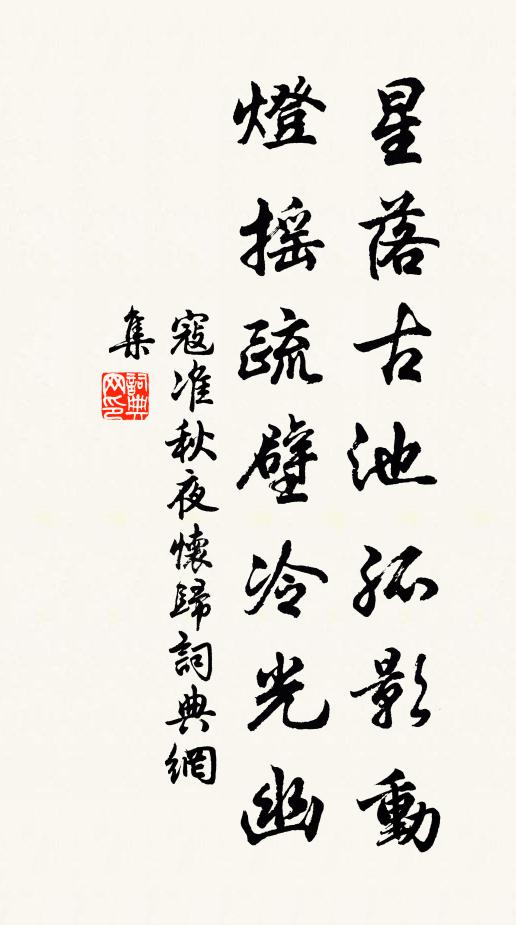 星落古池孤影動
燈摇疏壁冷光幽
寇准秋夜懷歸詞典網
集
詞典
网印